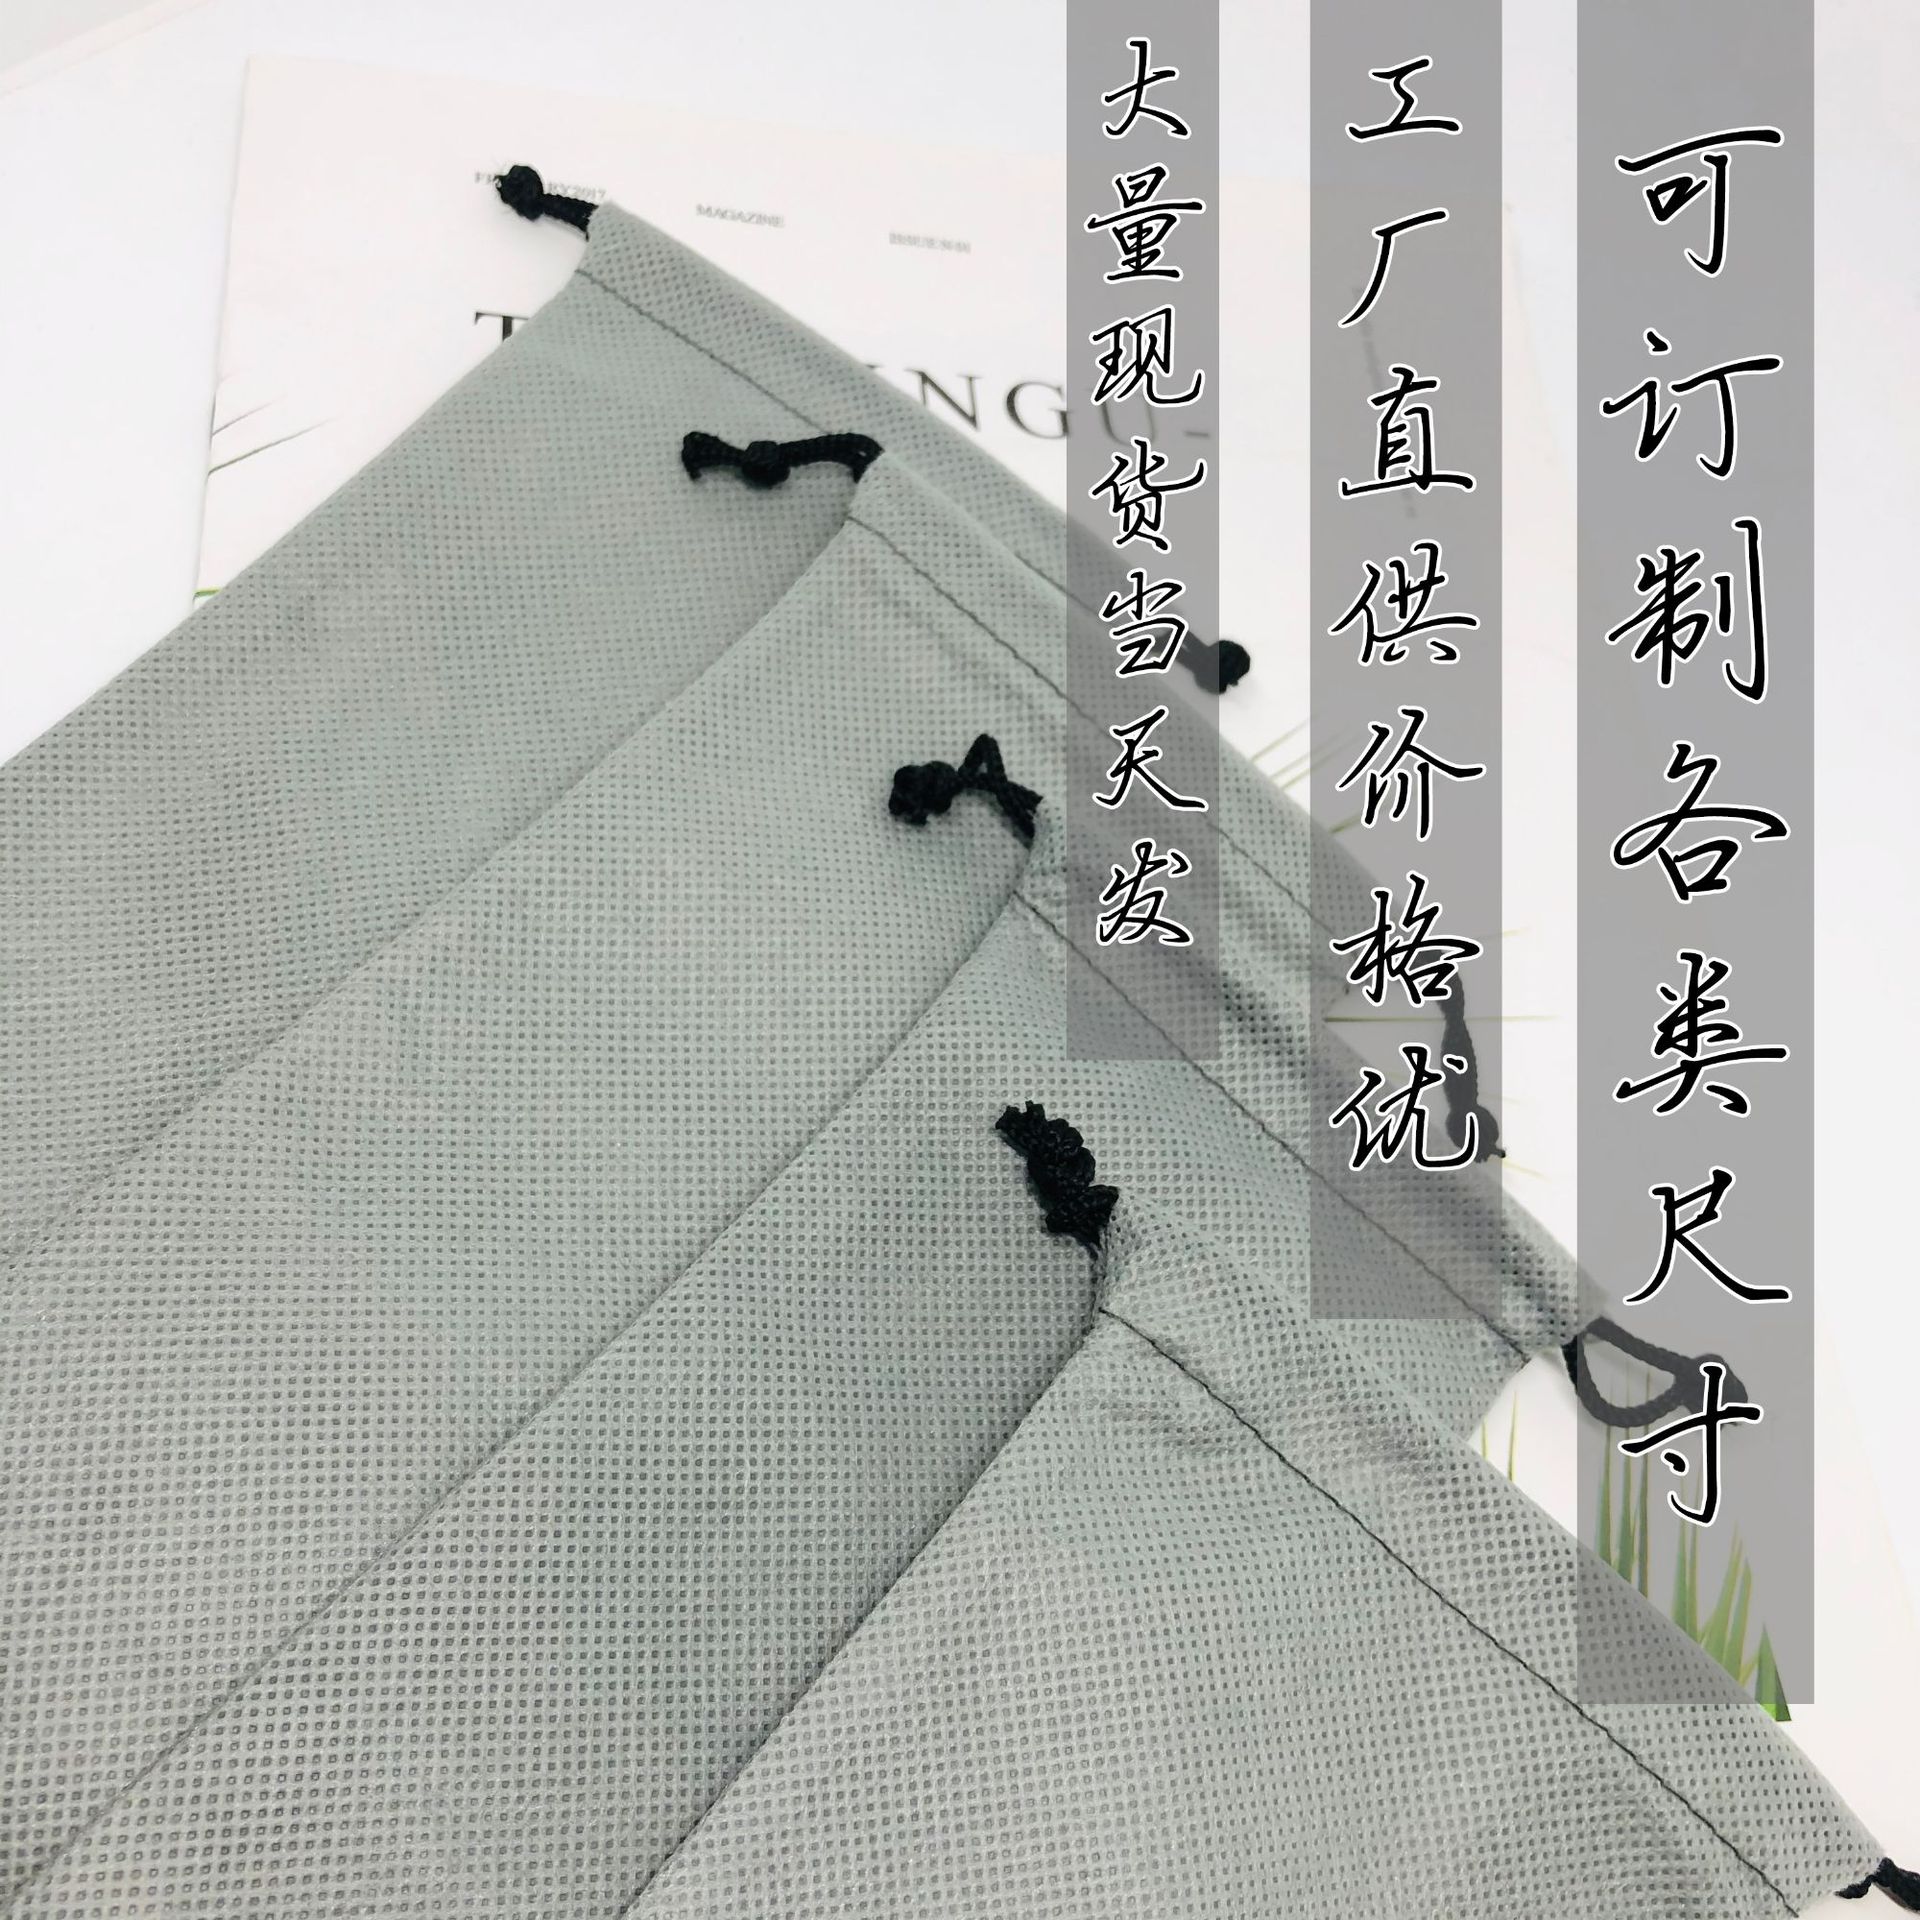 可订制各类尺寸
工厂直供价格优
大量现货当天发
MAGAZINE